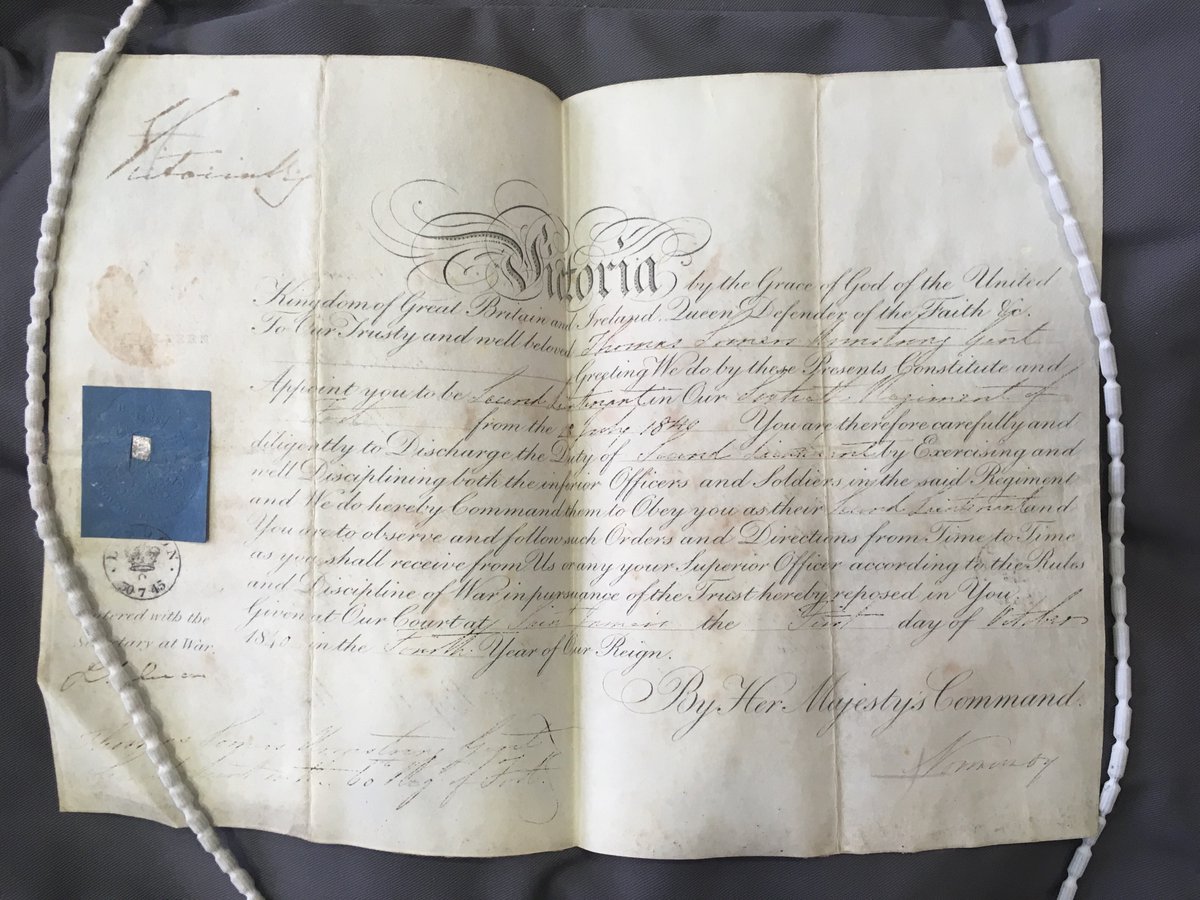 Victoria R
Victoria by the Grace of God of the United
Kingdom of Great Britain and Ireland, Queen, Defender of the Faith &c.
To Our Trusty and well beloved Thomas Armstrong Gent
Greeting We do by these Presents Constitute and
Appoint you to be Second Lieutenant in Our Sixtieth Regiment of
Foot from the You are therefore carefully and
diligently to Discharge the Duty of Second Lieutenant by Exercising and
well Disciplining both the inferior Officers and Soldiers in the said Regiment
and We do hereby Command them to Obey you as their Second Lieutenant and
You are to observe and follow such Orders and Directions from Time to Time
as you shall receive from Us or any your Superior Officer according to the Rules
and Discipline of War in pursuance of the Trust hereby reposed in You.
Given at Our Court at Saint James's the First day of October
1840 in the Fourth Year of Our Reign.
By Her Majesty's Command.
Normanby
LONDON
C
30.7.45
Entered with the
Secretary at War
Thomas Armstrong Gent
60 Reg of Foot